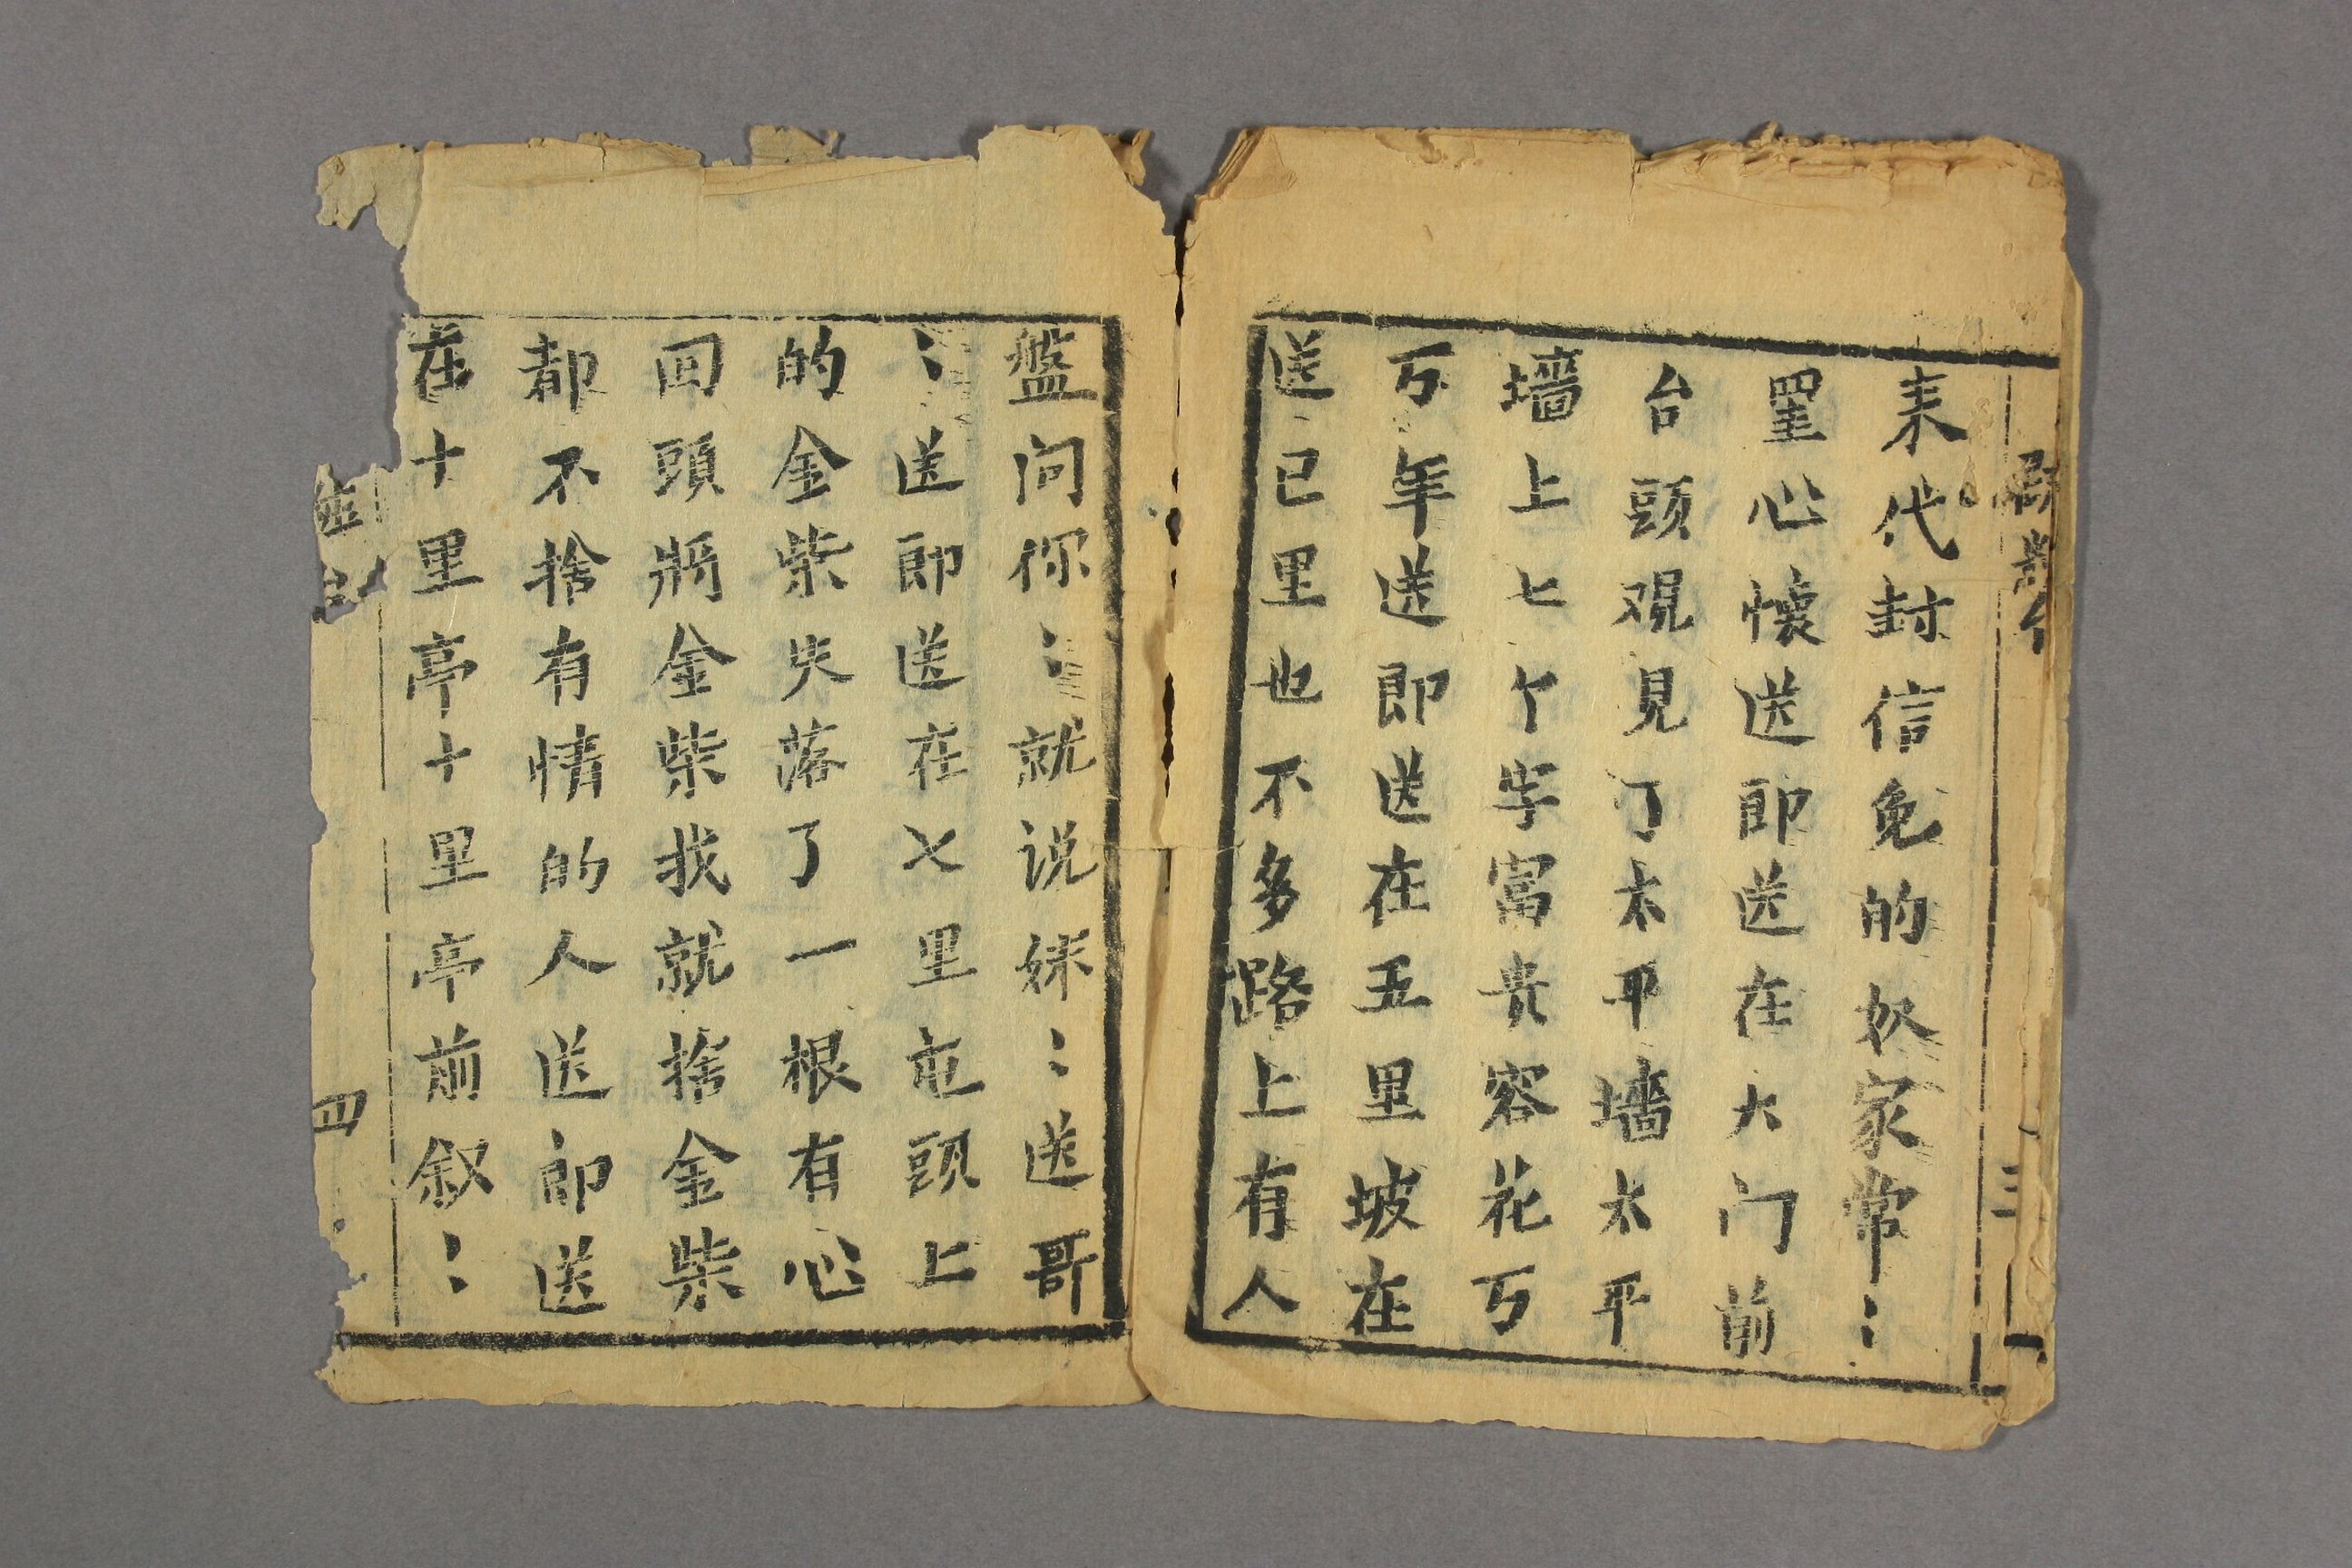 耒代封信免的奴家常〻
罣心懷送郎送在大门前
台頭观見了太平墻太平
墻上七个字富贵容花丂
丂年送郎送在五里坡在
送已里也不多路上有人
盤问你〻就说妹〻送哥
〻送郎送在七里屯頭上
的金柴失落了一根有心
回頭將金柴找就捨金柴
都不捨有情的人送郎送
在十里亭十里亭前叙〻
三
四